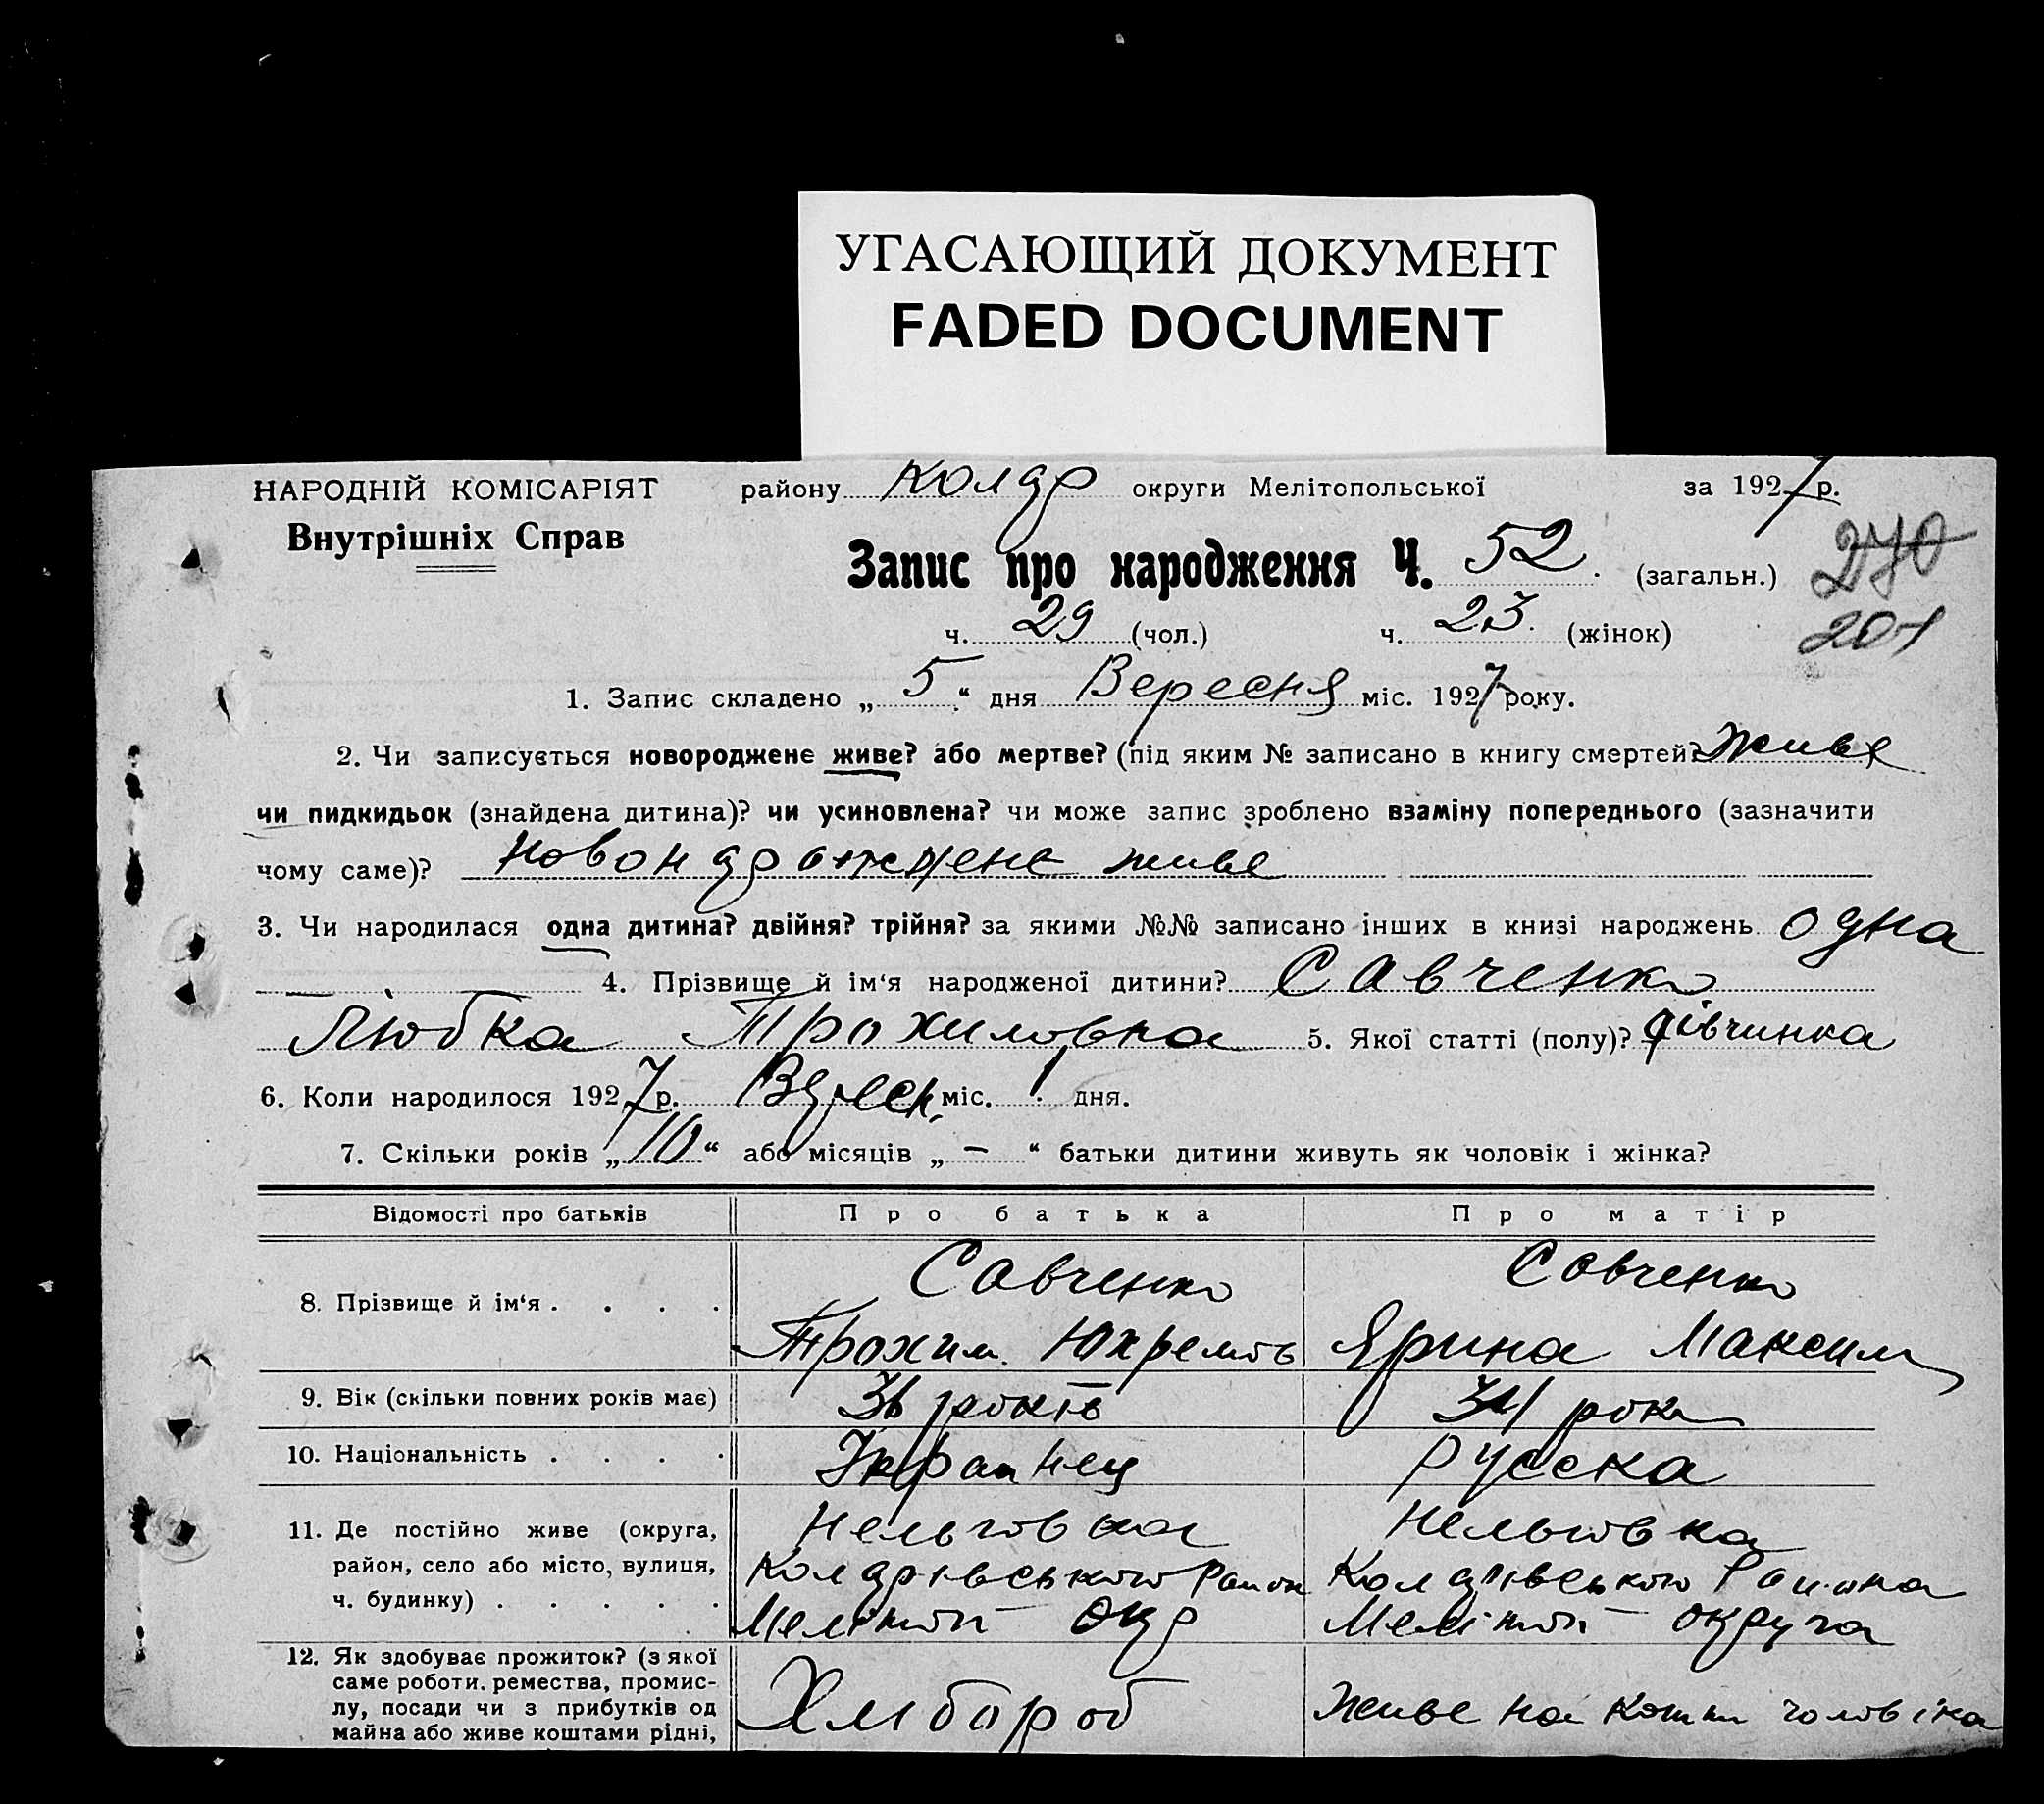 УГАСАЮЩИЙ ДОКУМЕНТ
FADED DOCUMENT
НАРОДНІЙ КОМІСАРІЯТ району Колдр округи Мелітопольської за 1927 р.
Внутрішніх Справ
Запис про народження Ч. 52 (загальн.) 270
ч. 29 (чол.) ч. 23. (жінок) 201
1. Запис складено „ 5 “ дня Вересня міс. 1927 року.
2. Чи записується новороджене живе? або мертве? (під яким № записано в книгу смертей? живе
чи пидкидьок (знайдена дитина)? чи усиновлена? чи може запис зроблено взаміну попереднього (зазначити
чому саме)? живе
3. Чи народилася одна дитина? двійня? трійня? за якими №№ записано інших в книзі народжень одна
4. Прізвище й ім‘я народженої дитини? Савченко
Любка Трохимовна 5. Якої статті (полу)? дівчинка
6. Коли народилося 1927 р. Вересн. міс. 1 дня.
7. Скільки років „ 10 “ або місяців „ — “ батьки дитини живуть як чоловік і жінка?
Відомості про батьків Про батька Про матір
8. Прізвище й ім‘я . . . . Савченко Савченко
Трохим. Юхремов Ярина Максим
9. Вік (скільки повних років має) 36 років 34 рока
10. Національність . . . . Украинец русска
11. Де постійно живе (округа, Нельговка Нельговка
район, село або місто, вулиця, Колдрівського Район Колдрівського Района
ч. будинку) . . . . . Мелітоп окр Мелітоп округа
12. Як здобуває прожиток? (з якої
саме роботи. ремества, промис-
лу, посади чи з прибутків од Хлібороб живе на кошти чоловіка
майна або живе коштами рідні,